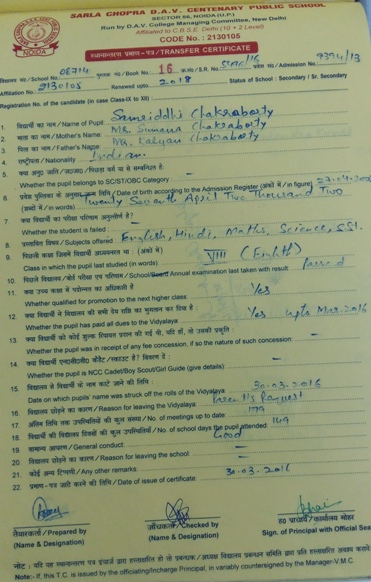 SARLA CHOPRA D.A.V. CENTENARY PUBLIC SCHOOL
SECTOR 56, NOIDA (U.P.)
Run by D.A.V. College Managing Committee, New Delhi
Affiliated to C.B.S.E. Delhi (10 + 2 Level)
CODE No. : 2130105
स्थानान्तरण प्रमाण-पत्र / TRANSFER CERTIFICATE
School No. 06714 पुस्तक सं०/ Book No. 16 S.R. No. प्रवेश सं०/ Admission No. 9394/13
Affiliation No. 2130105 Renewed upto 2018 Status of School : Secondary / Sr. Secondary
Registration No. of the candidate (in case Class-IX to XII)
1. विद्यार्थी का नाम / Name of Pupil Samriddhi Chakraborty
2. माता का नाम / Mother's Name Ms. Sumana Chakraborty
3. पिता का नाम / Father's Name Mr. Kalyan Chakraborty
4. राष्ट्रीयता / Nationality Indian
5. क्या अनु० जाति/ज०जा०/पिछड़ा वर्ग से सम्बन्धित है
Whether the pupil belongs to SC/ST/OBC Category
6. प्रवेश पुस्तिका के अनुसार जन्म तिथि / Date of birth according to the Admission Register (अंकों में / in figure)
(शब्दों में / in words) Twenty Seventh April Two Thousand Two
7. क्या विद्यार्थी का परीक्षा परिणाम अनुत्तीर्ण है?
Whether the student is failed :
8. प्रस्तावित विषय / Subjects offered English, Hindi, Maths, Science, S.St.
9. पिछली कक्षा जिसमें विद्यार्थी अध्ययनरत था : (अंकों में)
Class in which the pupil last studied (in words) VIII (Eighth)
10. पिछले विद्यालय / बोर्ड परीक्षा एवं परिणाम / School/Board Annual examination last taken with result passed
11. क्या उच्च कक्षा में पदोन्नत का अधिकारी है
Whether qualified for promotion to the next higher class: Yes
12. क्या विद्यार्थी ने विद्यालय की सभी देय राशि का भुगतान कर दिया है :
Whether the pupil has paid all dues to the Vidyalaya Yes upto Mar. 2016
13. क्या विद्यार्थी को कोई शुल्क रियायत प्रदान की गई थी, यदि हाँ, तो उसकी प्रकृति :
Whether the pupil was in receipt of any fee concession, if so the nature of such concession:
14. क्या विद्यार्थी एन०सी०सी० कैडेट / स्काउट है? विवरण दें :
Whether the pupil is NCC Cadet/Boy Scout/Girl Guide (give details)
15. विद्यालय से विद्यार्थी के नाम काटे जाने की तिथि :
Date on which pupils' name was struck off the rolls of the Vidyalaya 30-03-2016
16. विद्यालय छोड़ने का कारण / Reason for leaving the Vidyalaya Request
17. अंतिम तिथि तक उपस्थितियों की कुल संख्या / No. of meetings up to date: 179
18. विद्यार्थी की विद्यालय दिवसों की कुल उपस्थितियाँ / No. of school days the pupil attended 149
19. सामान्य आचरण / General conduct: Good
20. विद्यालय छोड़ने का कारण / Reason for leaving the school :
21. कोई अन्य टिप्पणी / Any other remarks
22. प्रमाण-पत्र जारी करने की तिथि / Date of issue of certificate 30-03-2016
तैयारकर्ता / Prepared by जाँचकर्ता / Checked by ह० प्राचार्य / कार्यालय मोहर
(Name & Designation) (Name & Designation) Sign. of Principal with Official Seal
Note:- if, this T.C. is issued by the officiating/Incharge Principal, in variably countersigned by the Manager-V.M.C.